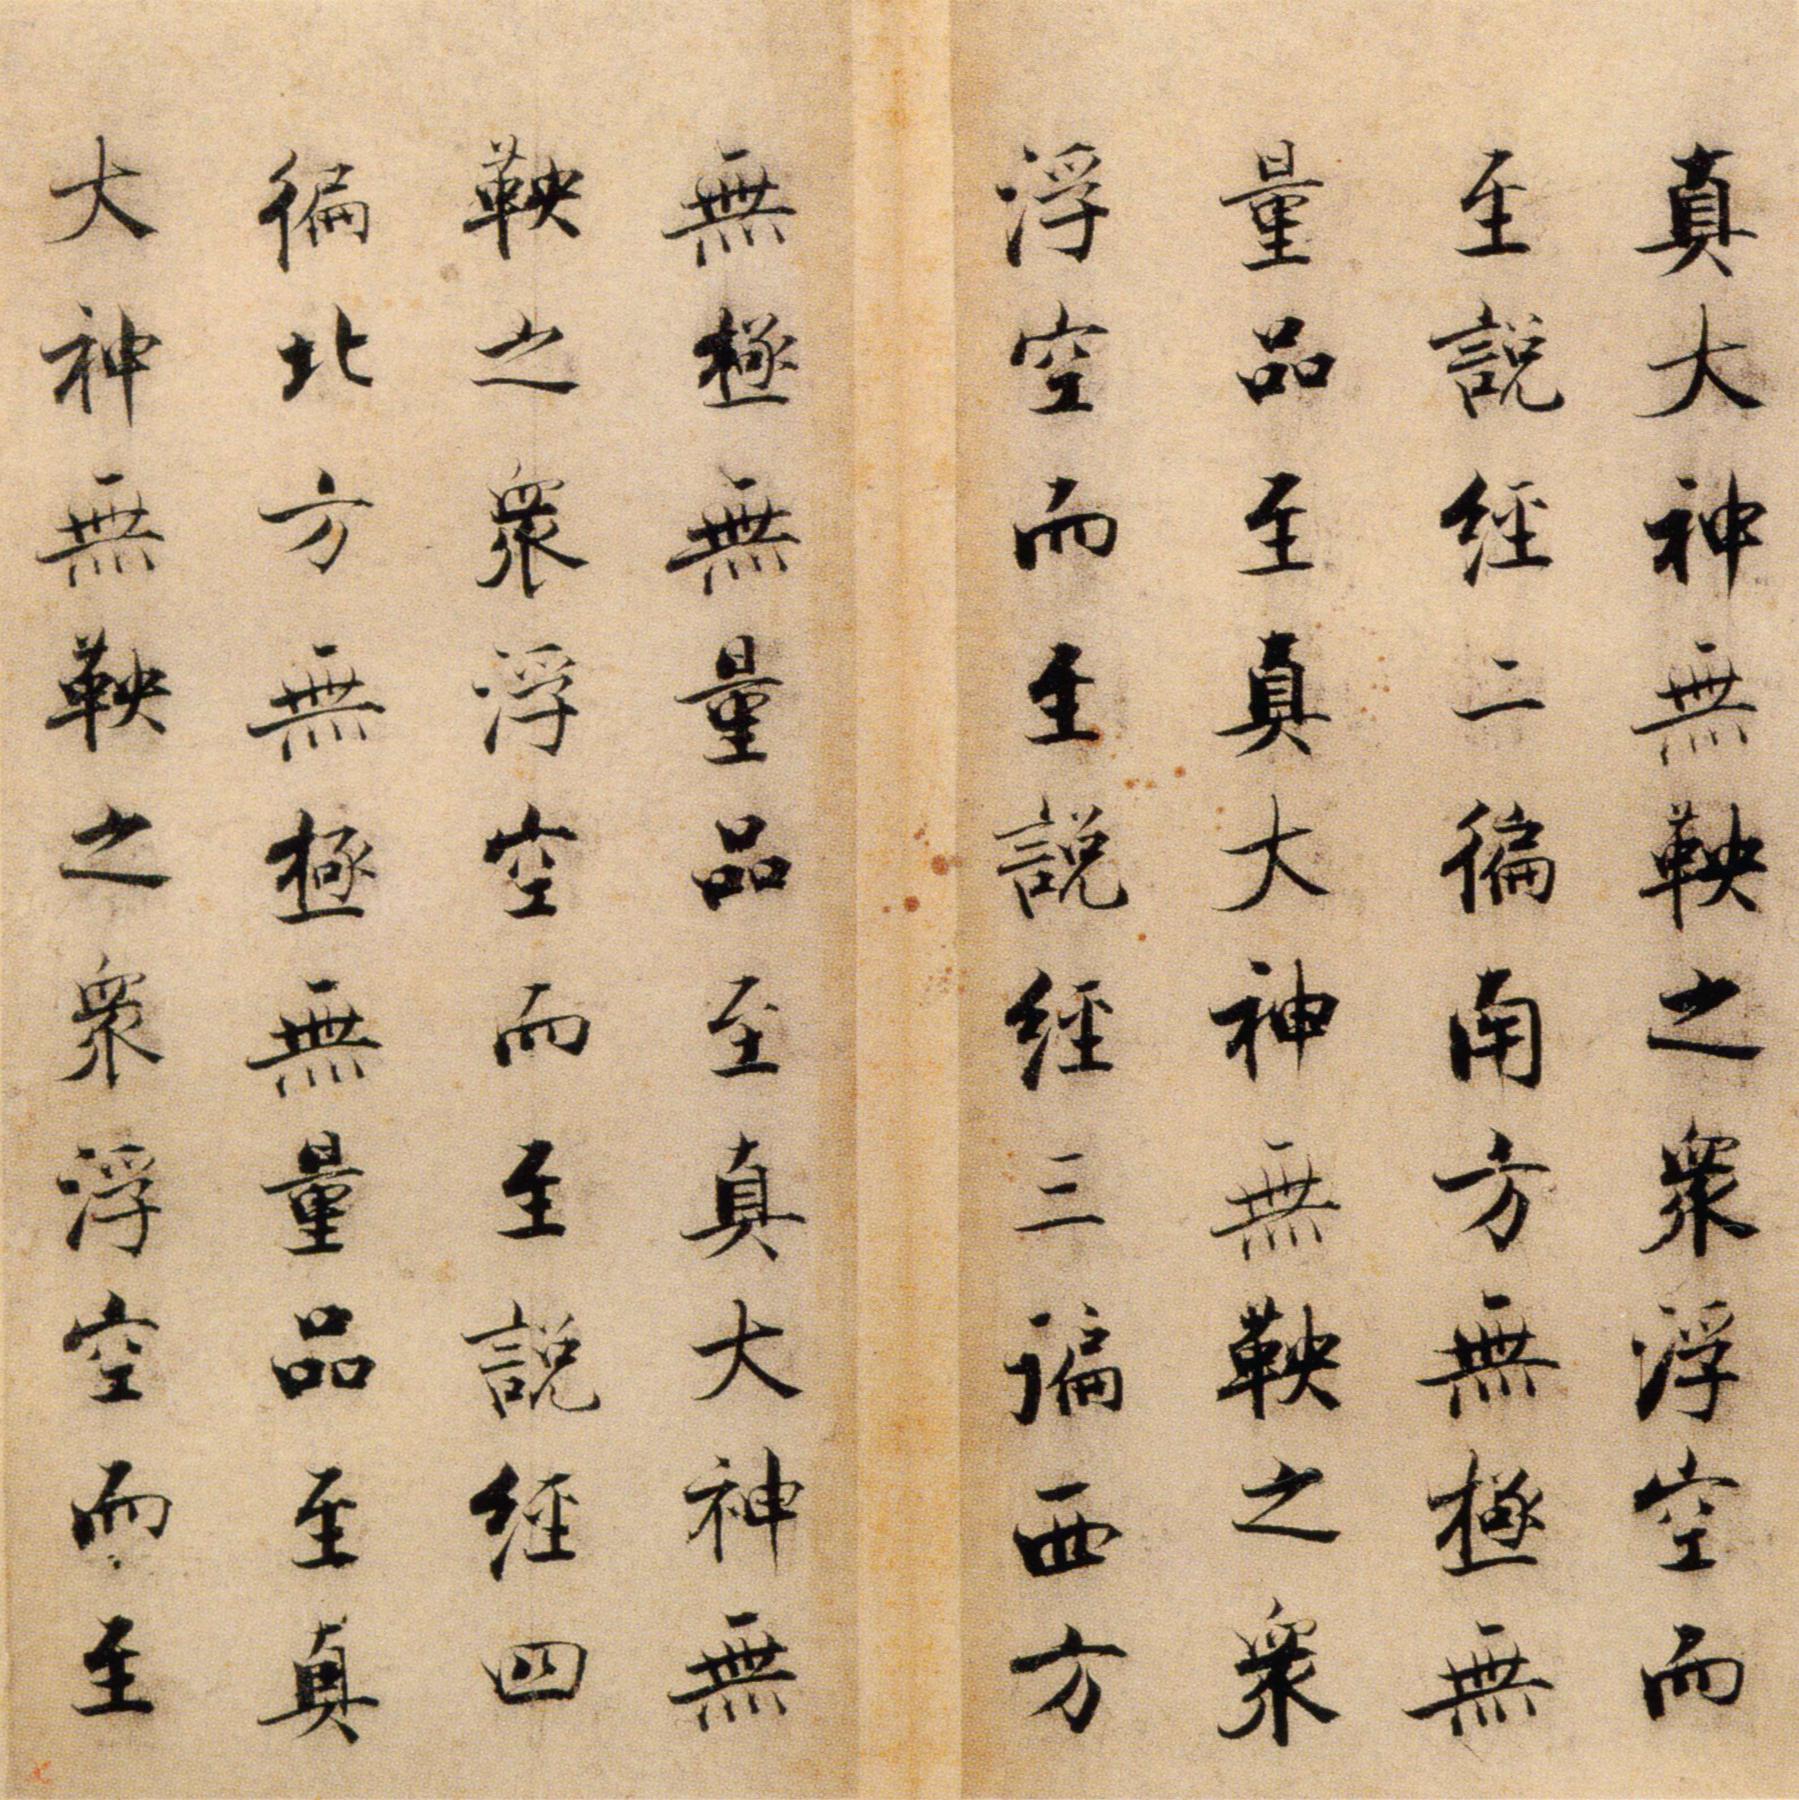 真大神無鞅之眾浮空而
至說經二徧南方無極無
量品至真大神無鞅之眾
浮空而至說經三遍西方
無極無量品至真大神無
鞅之眾浮空而至說經四
徧北方無極無量品至真
大神無鞅之眾浮空而至